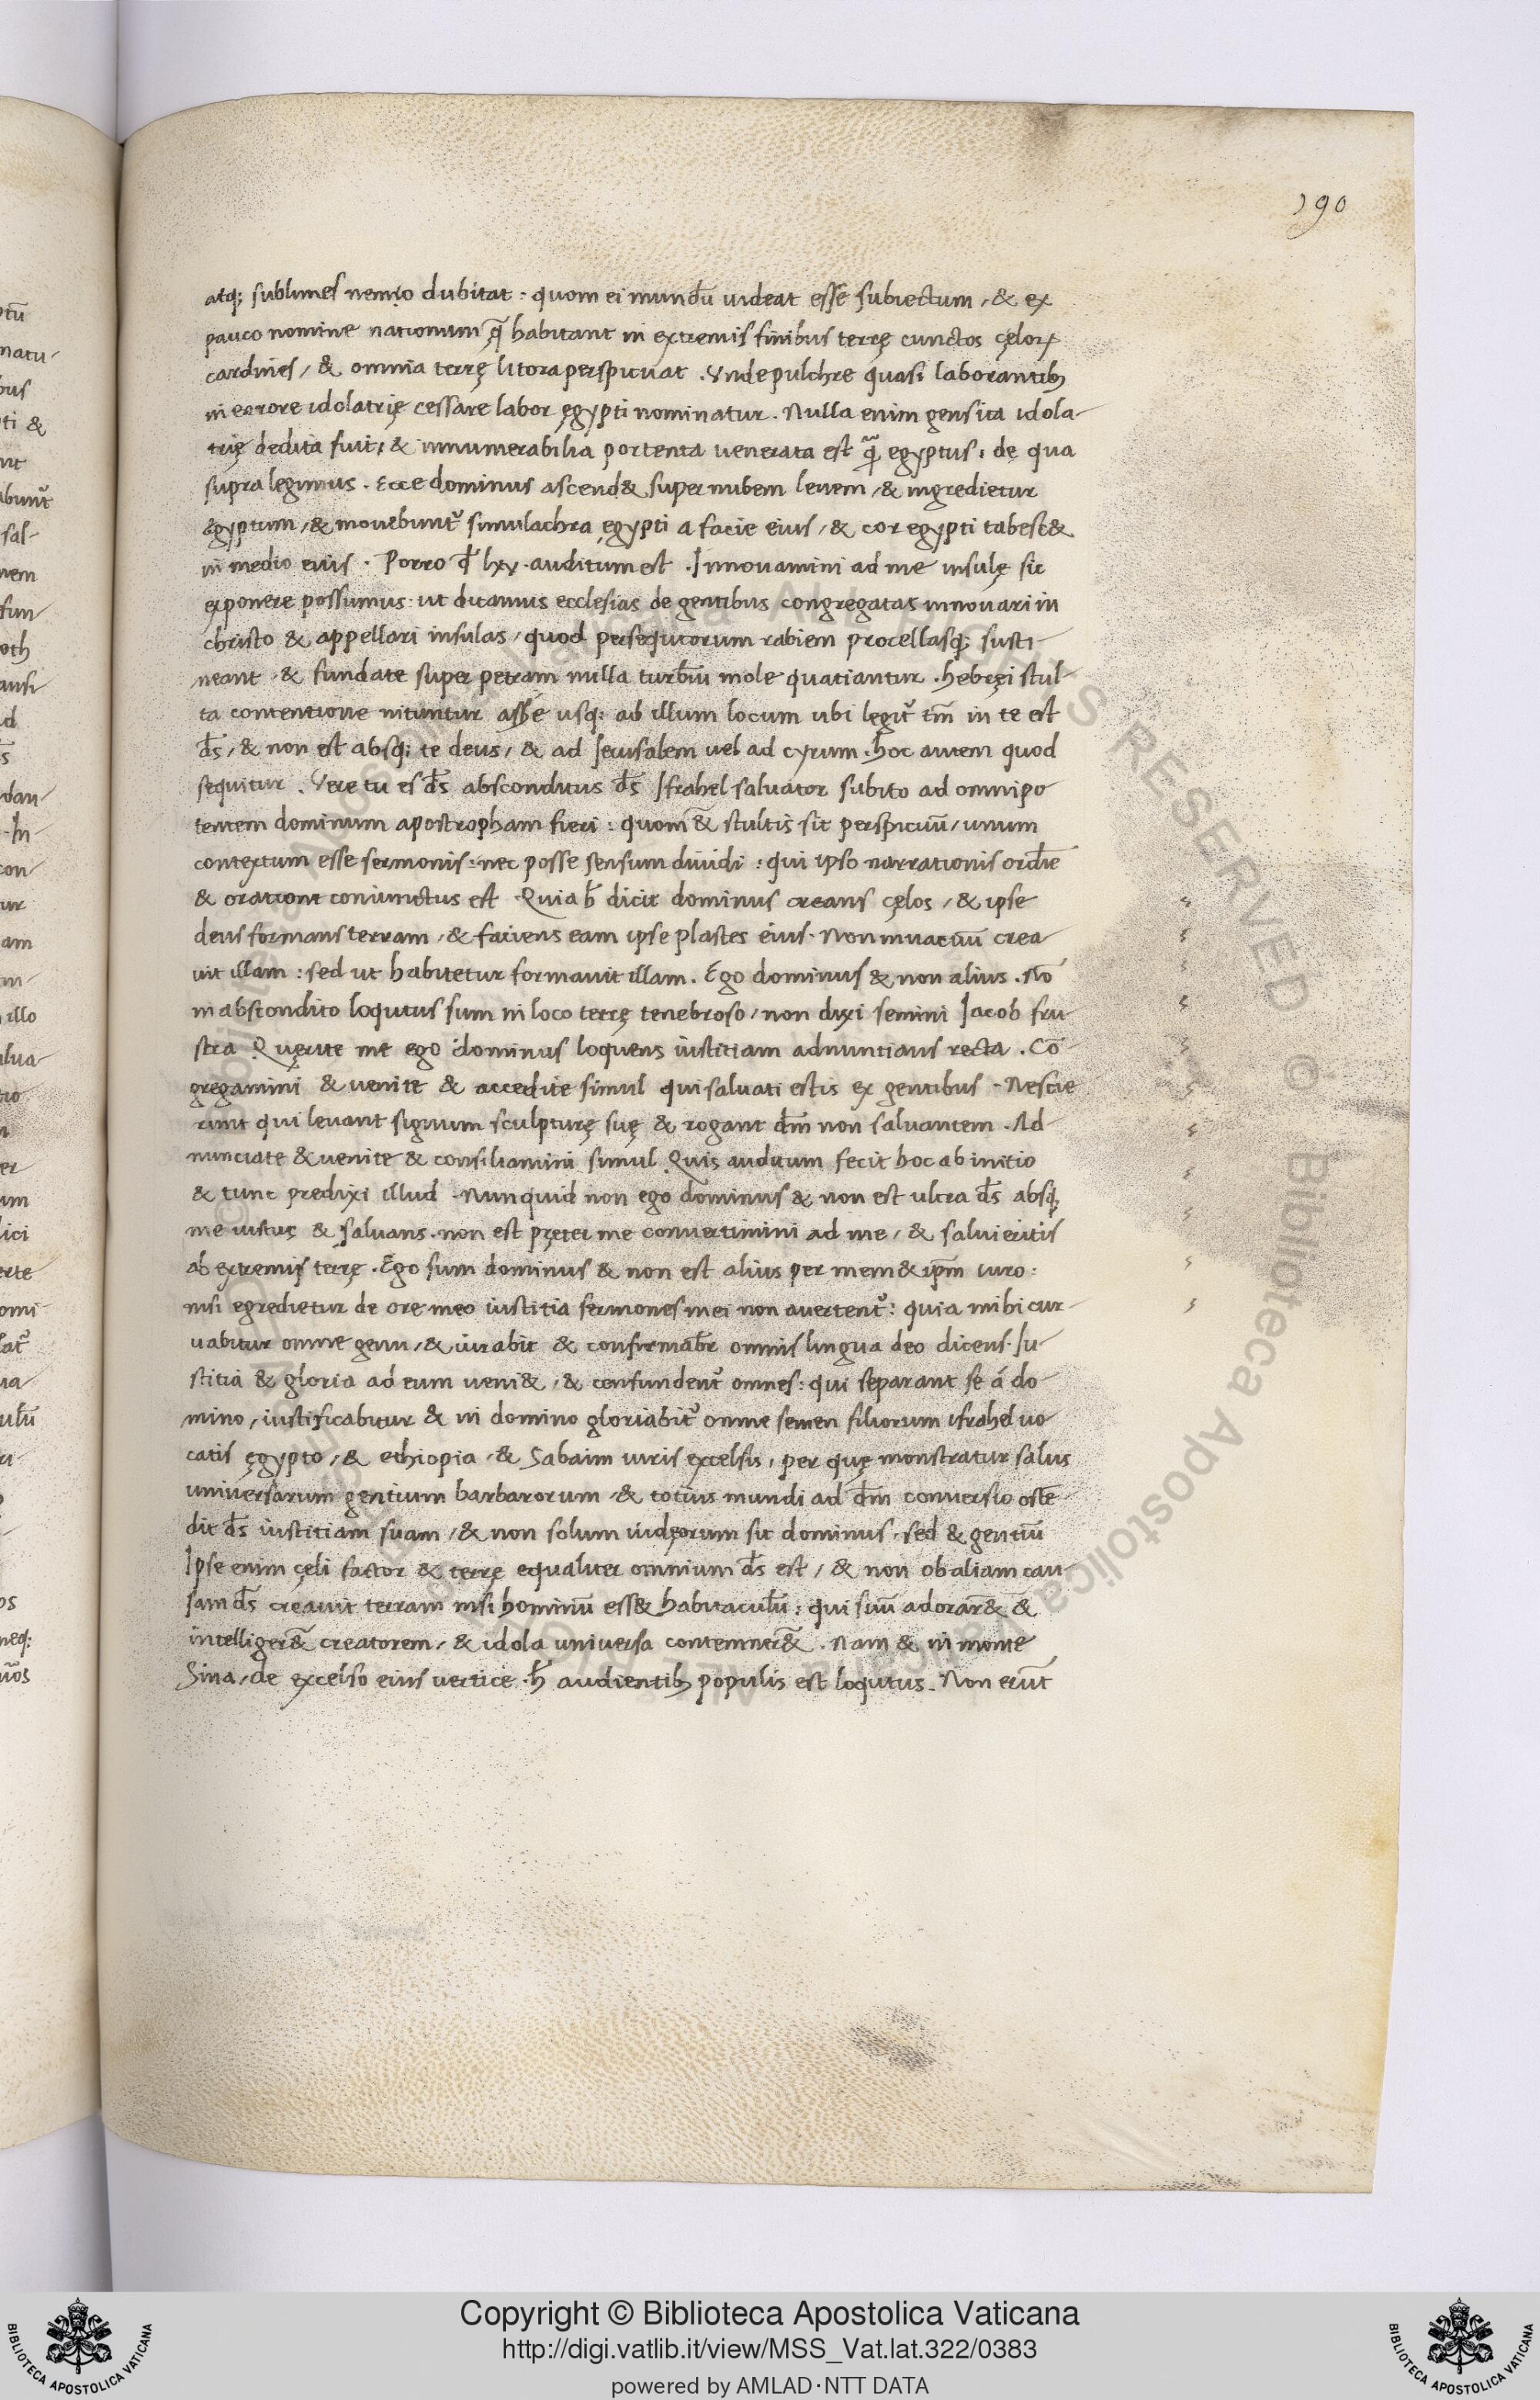 190
atq; sublimes nemo dubitat : quom ei mundū uideat esse subiectum , & ex
pauco nomine nationum q̄ habitant in extremis finibus terrę cunctos cęloꝝ
cardines , & omnia terrę litora perspiciat . Vnde pulchre quasi laborantib;
in errore idolatrię cessare labor ęgypti nominatur . Nulla enim gens ita idola-
trię dedita fuit , & innumerabilia portenta uenerata est quā egyptus , de qua
supra legimus . Ecce dominus ascend& super nubem leuem , & ingredietur
Egyptum , & mouebunt᷑ simulachra ęgypti a facie eius , & cor egypti tabesc&
in medio eius . Porro qđ lxx . auditum est . Innouamini ad me insulę sic
exponere possumus . ut dicamus ecclesias de gentibus congregatas innouari in
christo & appellari insulas , quod persequtorum rabiem procellasq; susti-
neant . & fundate super petram nulla turbinū mole quatiantur . hebręi stul-
ta contentione nituntur asse usq; ab illum locum ubi legit᷑ tm̄ in te est
ds̄ , & non est absq; te deus , & ad Jerusalem uel ad cyrum . hoc autem quod
sequitur . Vere tu es ds̄ absconditus ds̄ Israhel saluator subito ad omnipo
tentem dominum apostropham fieri : quom & stultis sit perspicuū , unum
contextum esse sermonis : nec posse sensum diuidi : qui ipso narrationis ordīe
& oratione coniunctus est . Quia h̄ dicit dominus creans cęlos , & ipse
deus formans terram , & faciens eam ipse plastes eius . Non in uacuū crea-
uit illam : sed ut habitetur formauit illam . Ego dominus & non alius . Nō
in abscondito loqutus sum in loco terrę tenebroso , non dixi semini Jacob fru-
stra Quęrite me ego dominus loquens iustitiam adnuntians recta . Cō
gregamini & uenite & accedite simul qui saluati estis ex gentibus - Nescie
runt qui leuant signum sculpturę suę & rogant dm̄ non saluantem . Ad-
nunciate & uenite & consiliamini simul . Quis auditum fecit hoc ab initio
& tunc predixi illud . Nunquid non ego dominus & non est ultra ds̄ absq;
me iustus & saluans . non est pręter me conuertimini ad me , & salui eritis
ab extremis terrę . Ego sum dominus & non est alius per mem& ipm̄ iuro :
nisi egredietur de ore meo iustitia sermones mei non auertent᷑ : quia mihi cur-
uabitur omne genu , & iurabit & confirmabr̄ omnis lingua deo dicens . Iu-
stitia & gloria ad eum ueni& , & confundent᷑ omnes : qui separant se á do-
mino , iustificabitur & in domino gloriabit᷑ omne semen filiorum israhel uo-
catis ęgypto , & ethiopia , & Sabaim uiris excelsis , per quę monstratur salus
uniuersarum gentium barbarorum , & totius mundi ad dm̄ conuersio ostē-
dit ds̄ iustitiam suam , & non solum iudęorum sit dominus , sed & gentiū
Ipse enim cęli factor & terrę equaliter omnium ds̄ est , & non ob aliam cau-
sam ds̄ creauit terram nisi hominū ess& habitaculū : qui suū adorār& &
intelliger& creatorem , & idola uniuersa contemner& . Nam & in monte
Sina , de excelso eius uertice . h̄ audientib; populis est loqutus . Non erūt
Copyright © Biblioteca Apostolica Vaticana
http://digi.vatlib.it/view/MSS_Vat.lat.322/0383
powered by AMLAD·NTT DATA